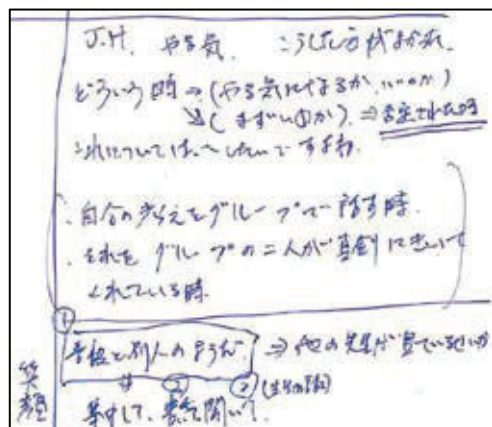 J.H. やる気. こうした方がよかれ.
どういう時→(やる気になるか、いいのか)
↘(まずいのか)⇒否定された時
これについては、〜したいですよね.
・自分の考えをグループで話す時.
・それをグループの二人が真剣にきいて
くれている時.
①
普段と別人のようだ. ⇒ 他の先生が見ているから
② ③(生生の関係)
笑顔
集中して、聞いて.